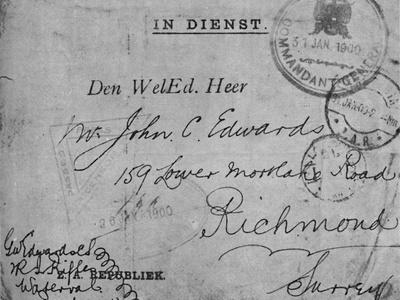 IN DIENST.
COMMANDANT GENERAAL
31 JAN. 1900
Den WelEd. Heer
Mr John C. Edwards
159 Lower Mortlake Road
Richmond
Surrey
26 JAN 1900
Z.A.R.
Z. A. REPUBLIEK.
Waterval